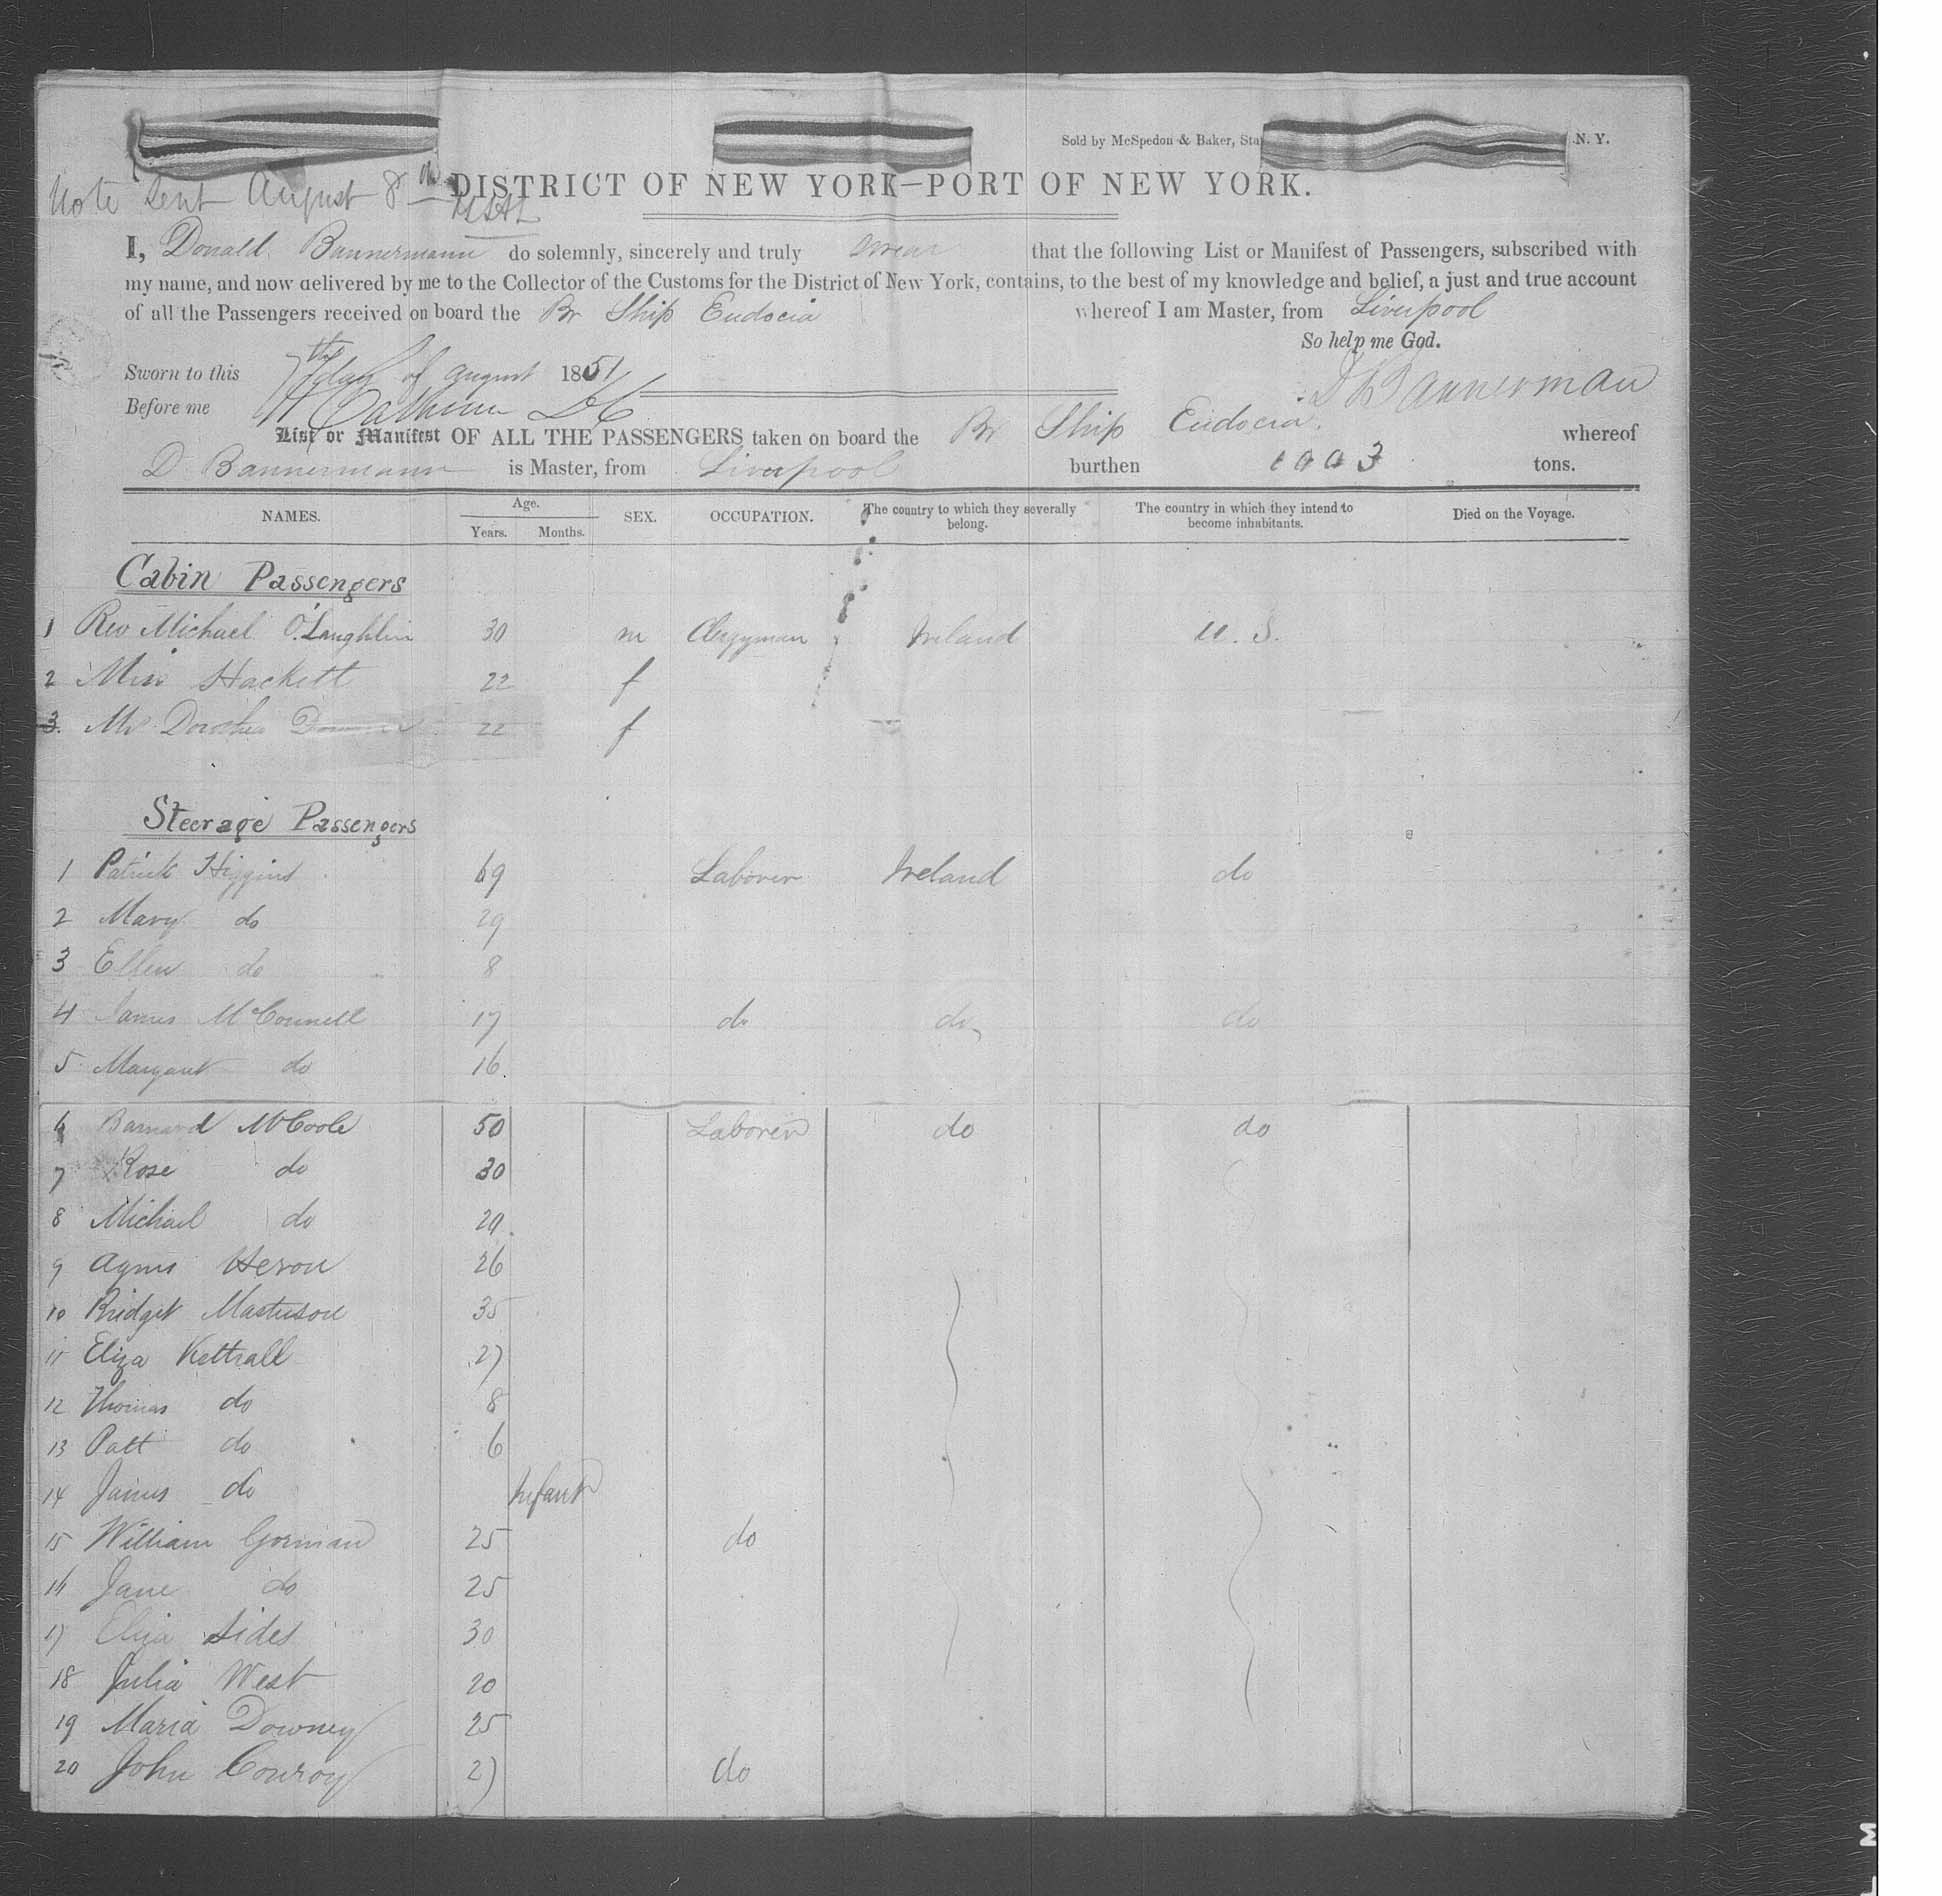 Sold by McSpedon & Baker, Sta N. Y.
Note sent August 8th
DISTRICT OF NEW YORK—PORT OF NEW YORK.
I, Donald Bannermann do solemnly, sincerely and truly swear that the following List or Manifest of Passengers, subscribed with
my name, and now delivered by me to the Collector of the Customs for the District of New York, contains, to the best of my knowledge and belief, a just and true account
of all the Passengers received on board the Br Ship Eudocia whereof I am Master, from Liverpool
So help me God.
Sworn to this 7th day of August 1851
D Bannerman
Before me Calhoun
List or Manifest OF ALL THE PASSENGERS taken on board the Br Ship Eudocia whereof
D Bannermann is Master, from Liverpool burthen 1003 tons.
NAMES. Age. Years. Months. SEX. OCCUPATION. The country to which they severally belong. The country in which they intend to become inhabitants. Died on the Voyage.
Cabin Passengers
1 Rev Michael O'Laughlin 30 m Clergyman Ireland U. S.
2 Miss Hackett 22 f
3. Dorothea 22 f
Steerage Passengers
1 Patrick Higgins 69 Laborer Ireland do
2 Mary do 29
3 Ellen do 8
4 James McConnell 17 do do do
5 Margaret do 16
6 Barnard McCoole 50 Laborer do do
7 Rose do 30
8 Michael do 20
9 Agnes Heron 26
10 Bridget Masterson 35
11 Eliza Kettrall 27
12 Thomas do 8
13 Patt do 6
14 James do Infant
15 William Gorman 25 do
16 Jane do 25
17 Eliza Sides 30
18 Julia West 20
19 Maria Downey 25
20 John Conroy 27 do